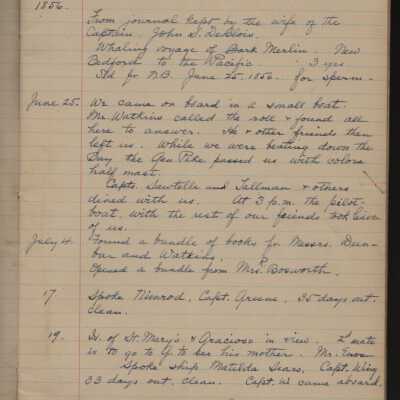 1856.
From journal kept by the wife of the
Captain, John S. DeBlois.
Whaling voyage of Bark Merlin. New
Bedford to the Pacific 3 yrs
Sld fr N.B. June 25. 1856. for sperm.
June 25. We came on board in a small boat.
Mr. Watkins called the roll & found all
here to answer. He & other friends then
left us. While we were beating down the
Bay the Geo Pike passed us with colors
half mast.
Capts. Sawtelle and Tallman & others
dined with us. At 3 p.m. the pilot-
boat, with the rest of our friends took leave
of us.
July 4. Found a bundle of books for Messrs. Dun-
bar and Watkins.
Opened a bundle from Mrs Bosworth.
17 Spoke Nimrod, Capt. Greene, 35 days out.
clean.
19. Is. of St. Mary's & Graciosa in view. 2d mate
is to go to G. to see his mother. Mr. Enos
Spoke ship Matilda Sears, Capt. Wing
33 days out, clean. Capt. W. came aboard.